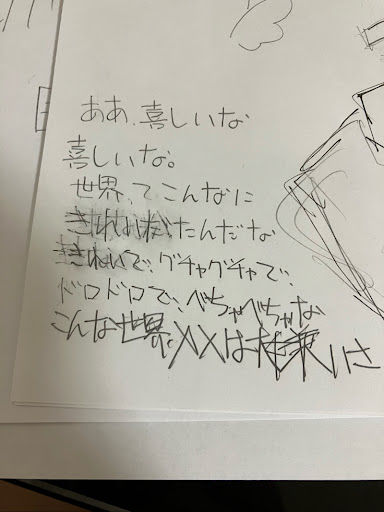 ああ、喜しいな
喜しいな。
世界、てこんなに
きれいだったんだな
きれいで、グチャグチャで、
ドロドロで、べちゃべちゃな
こんな世界、メメは いさ